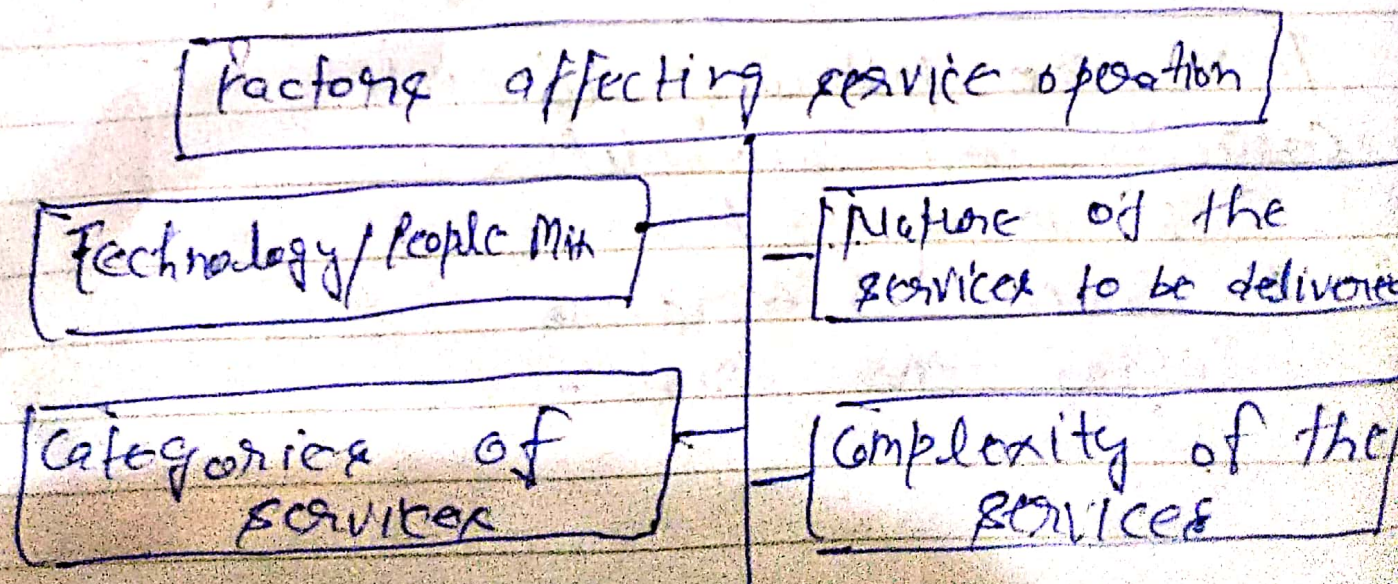 Factors affecting service operation
Technology/People Mix
Nature of the
services to be delivered
Categories of
services
Complexity of the
services